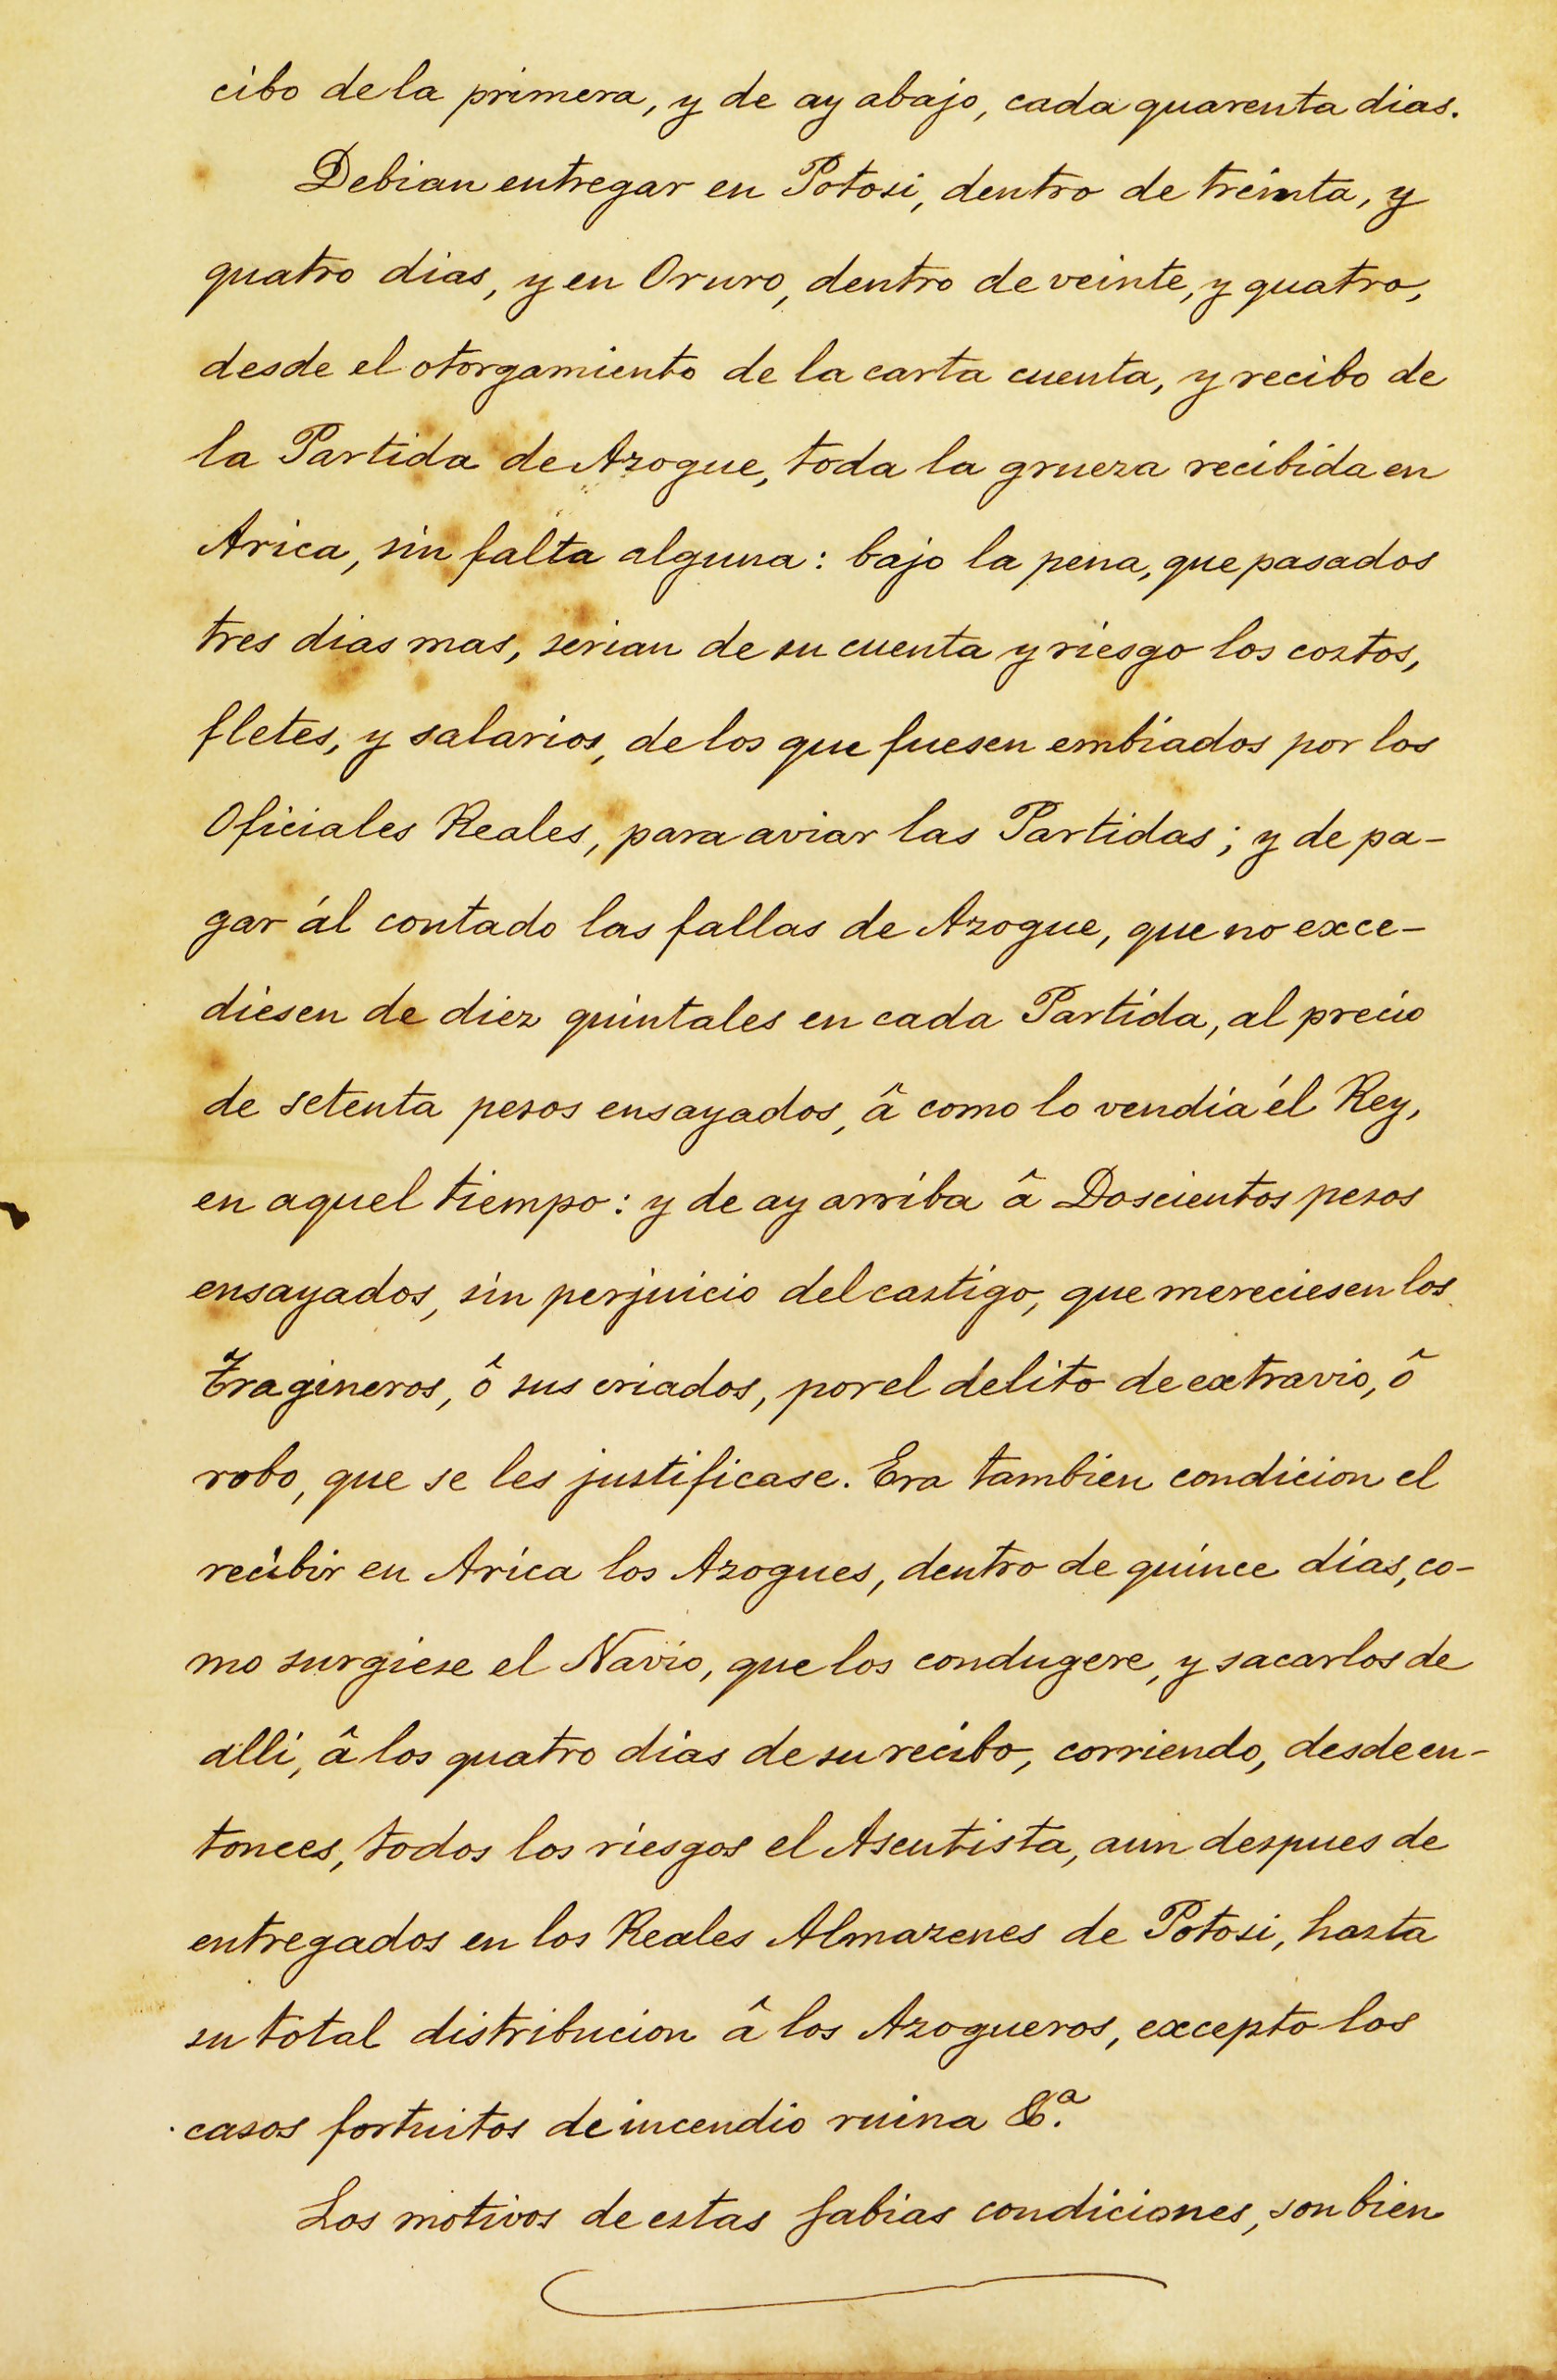 cibo de la primera, y de ay abajo, cada quarenta dias.
Debian entregar en Potosi, dentro de treinta, y
quatro dias, y en Oruro, dentro de veinte, y quatro,
desde el otorgamiento de la carta cuenta, y recibo de
la Partida de Azogue, toda la grueza recibida en
Arica, sin falta alguna: bajo la pena, que pasados
tres dias mas, serian de su cuenta y riesgo los costos,
fletes, y salarios, de los que fuesen embiados por los
Oficiales Reales, para aviar las Partidas; y de pa-
gar ál contado las fallas de Azogue, que no exce-
diesen de diez quintales en cada Partida, al precio
de setenta pesos ensayados, â como lo vendia él Rey,
en aquel tiempo: y de ay arriba â Doscientos pesos
ensayados, sin perjuicio del castigo, que mereciesen los
Tragineros, ô sus criados, por el delito de extravio, ô
robo, que se les justificase. Era tambien condicion el
recibir en Arica los Azogues, dentro de quince dias, co-
mo surgiese el Navio, que los condugere, y sacarlos de
alli, â los quatro dias de su recibo, corriendo, desde en-
tonces, todos los riesgos el Asentista, aun despues de
entregados en los Reales Almazenes de Potosi, hasta
su total distribucion â los Azogueros, excepto los
casos fortuitos de incendio ruina &ª.
Los motivos de estas sabias condiciones, son bien